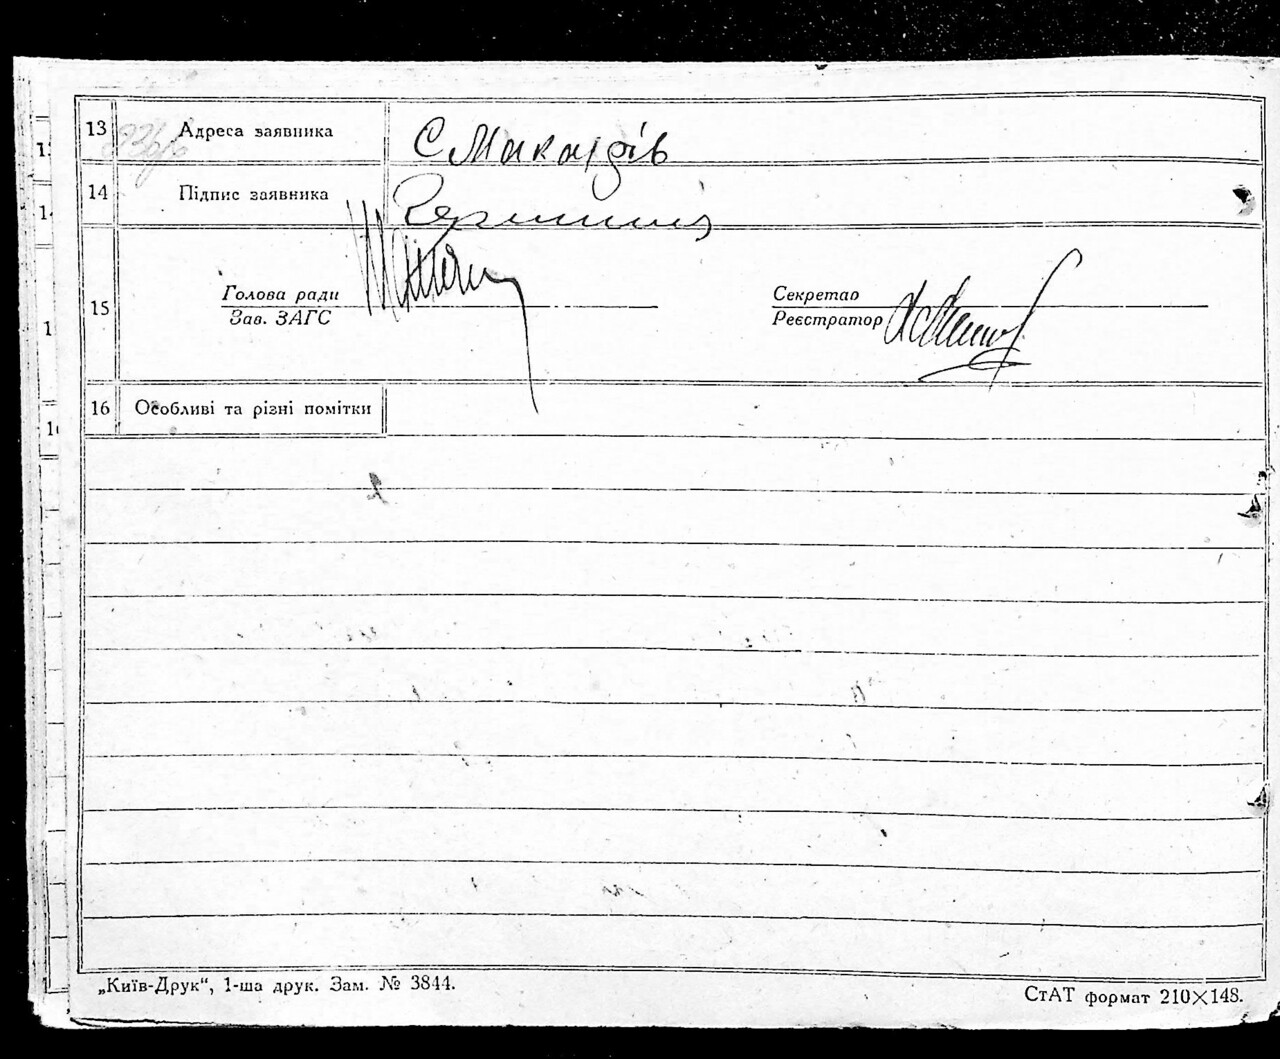 13 Адреса заявника С Макарів
14 Підпис заявника
15 Голова ради Секретар
Зав. ЗАГС Реєстратор
16 Особливі та різні помітки
„Київ-Друк“, 1-ша друк. Зам. № 3844.
СтАТ формат 210×148.